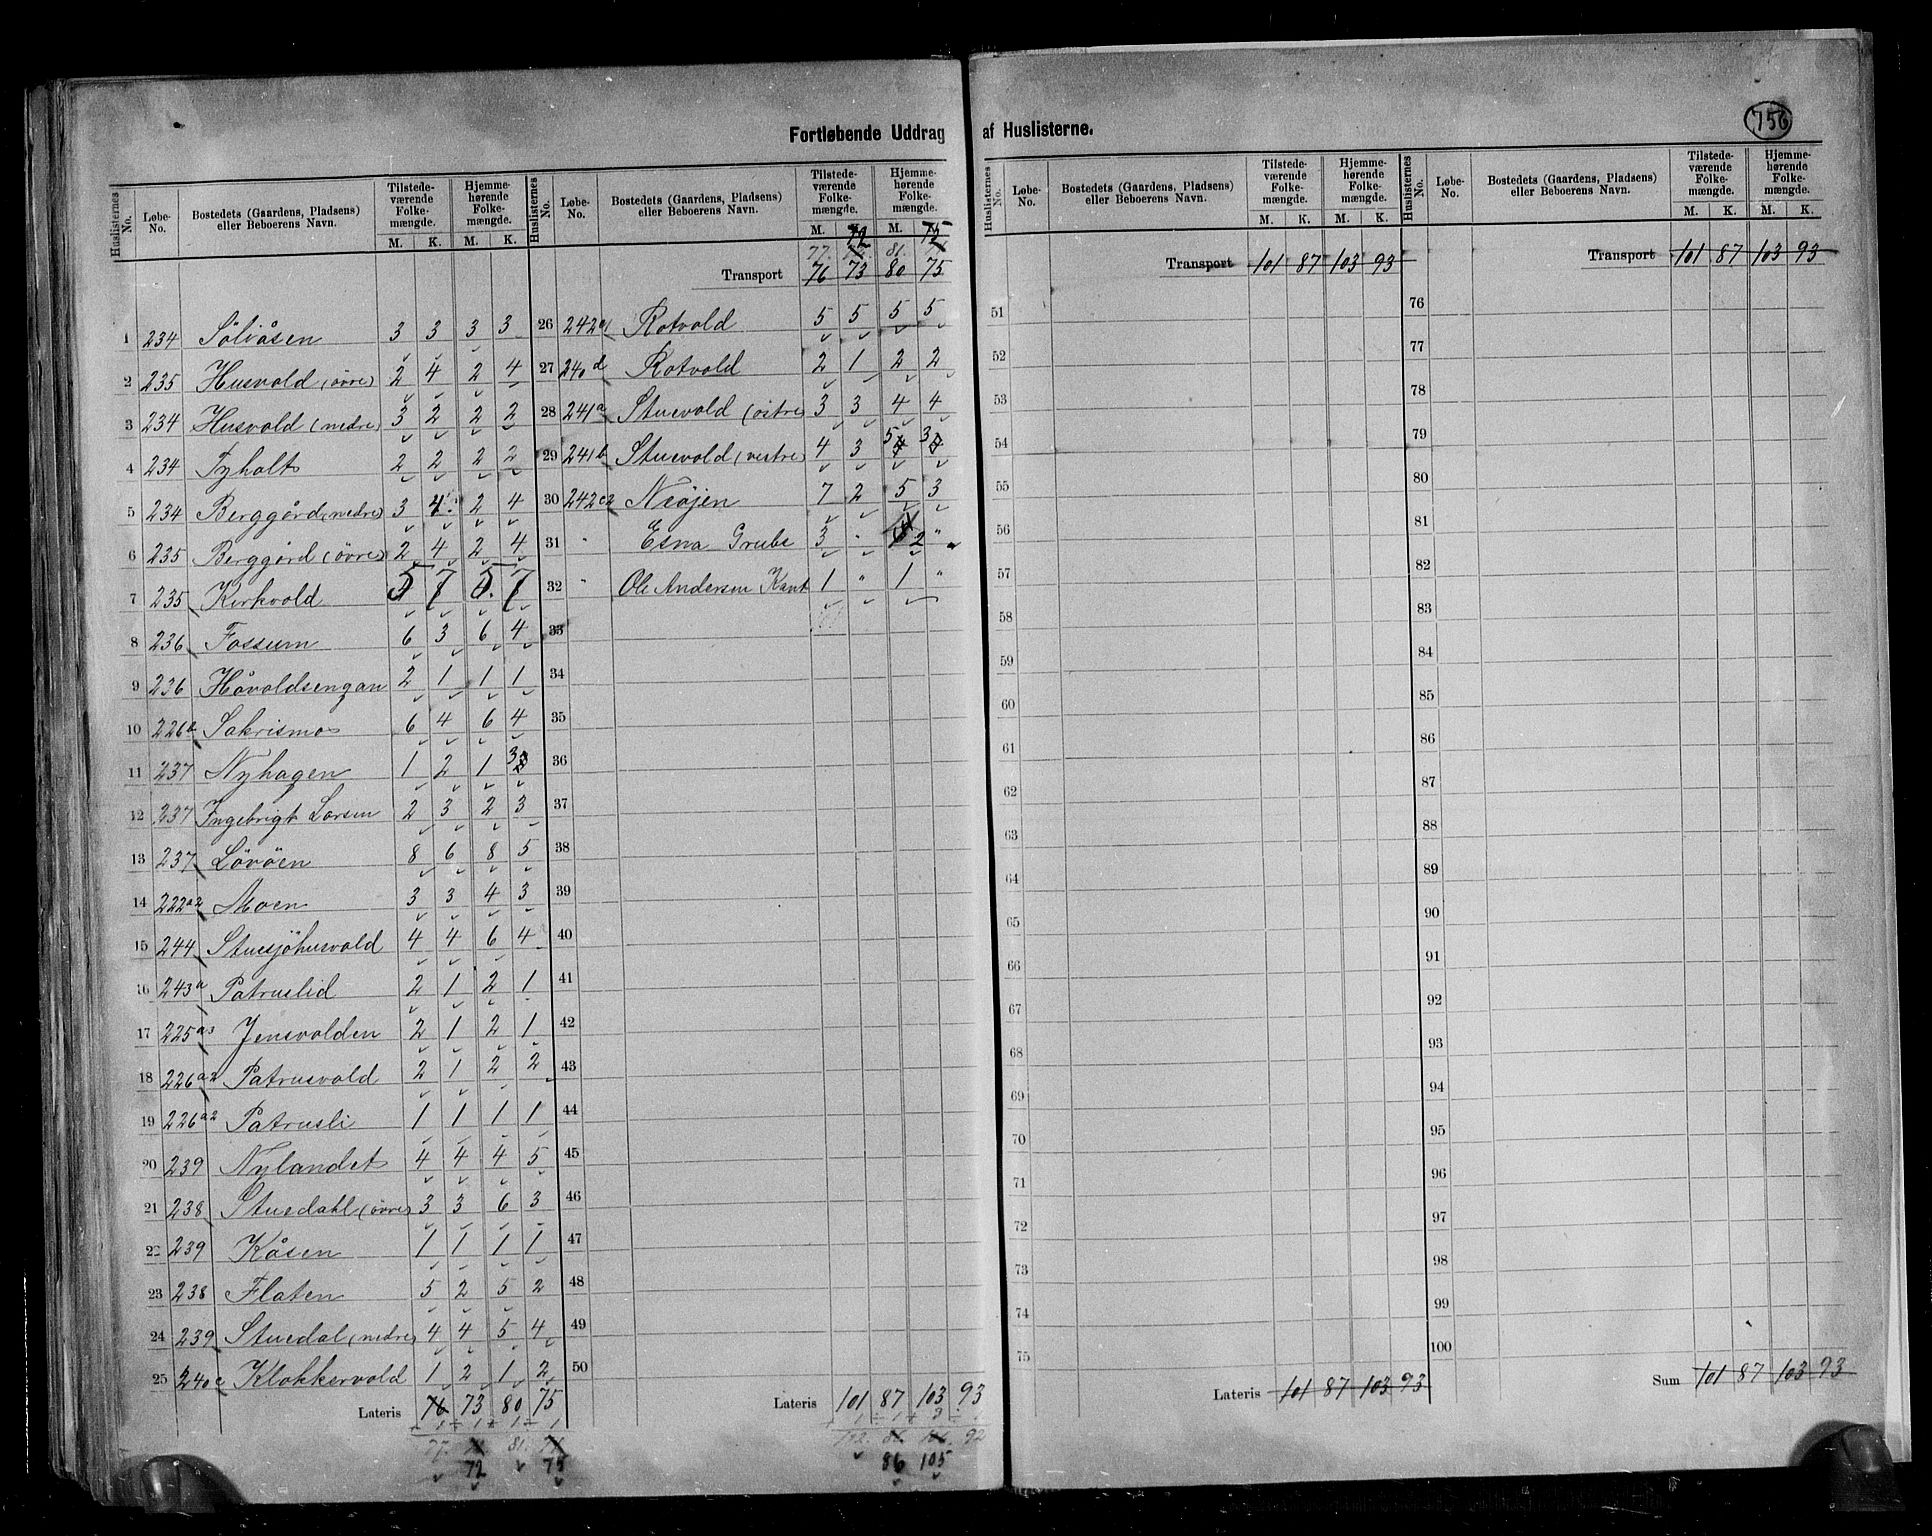 Fortløbende Uddrag af Huslisterne.
756
Huslisternes No. | Løbe-No. | Bostedets (Gaardens, Pladsens) eller Beboerens Navn. | Tilstedeværende Folkemængde. M. K. | Hjemmehørende Folkemængde. M. K.
1 234 Sölvåsen 3 3 3 3
2 235 Husvold (övre) 2 4 2 4
3 234 Husvold (nedre) 3 2 2 2
4 234 Tyholt 2 2 2 2
5 234 Berggård (nedre) 3 4 2 4
6 235 Berggård (övre) 2 4 2 4
7 235 Kirkvold 5 7 5 7
8 236 Fossum 6 3 6 4
9 236 Håvoldsengan 2 1 1 1
10 226a Sakrismo 6 4 6 4
11 237 Nyhagen 1 2 1 3
12 237 Ingebrigt Larsen 2 3 2 3
13 237 Lövöen 8 6 8 5
14 222a2 Moen 3 3 4 3
15 244 Stuesjöhusvold 4 4 6 4
16 243a Patruslid 2 1 2 1
17 225a3 Jensvolden 2 1 2 1
18 226a2 Patrusvold 2 1 2 2
19 226a2 Patrusli 1 1 1 1
20 239 Nylandet 4 4 4 5
21 238 Stuedahl (övre) 3 3 6 3
22 239 Kåsen 1 1 1 1
23 238 Flaten 5 2 5 2
24 239 Stuedal (nedre) 4 4 5 4
25 240c Klokkervold 1 2 1 2
Lateris 76 73 80 75
1 1 1 1
77. 81.
72 75
Huslisternes No. | Løbe-No. | Bostedets (Gaardens, Pladsens) eller Beboerens Navn. | Tilstedeværende Folkemængde. M. K. | Hjemmehørende Folkemængde. M. K.
72 75
77. 81.
Transport 76 73 80 75
26 242c1 Rotvold 5 5 5 5
27 240d Rotvold 2 1 2 2
28 241a Stuevold (östre) 3 3 4 4
29 241b Stuevold (vestre) 4 3 5 3
30 242c2 Neöjen 7 2 5 3
31 " Esna Grube 3 " 2 "
32 " Ole Andersen Kant 1 " 1 "
33
34
35
36
37
38
39
40
41
42
43
44
45
46
47
48
49
50
Lateris 101 87 103 93
102. 86. 92
86 105
Huslisternes No. | Løbe-No. | Bostedets (Gaardens, Pladsens) eller Beboerens Navn. | Tilstedeværende Folkemængde. M. K. | Hjemmehørende Folkemængde. M. K.
Transport 101 87 103 93
51
52
53
54
55
56
57
58
59
60
61
62
63
64
65
66
67
68
69
70
71
72
73
74
75
Lateris 101 87 103 93
Huslisternes No. | Løbe-No. | Bostedets (Gaardens, Pladsens) eller Beboerens Navn. | Tilstedeværende Folkemængde. M. K. | Hjemmehørende Folkemængde. M. K.
Transport 101 87 103 93
76
77
78
79
80
81
82
83
84
85
86
87
88
89
90
91
92
93
94
95
96
97
98
99
100
Sum 101 87 103 93